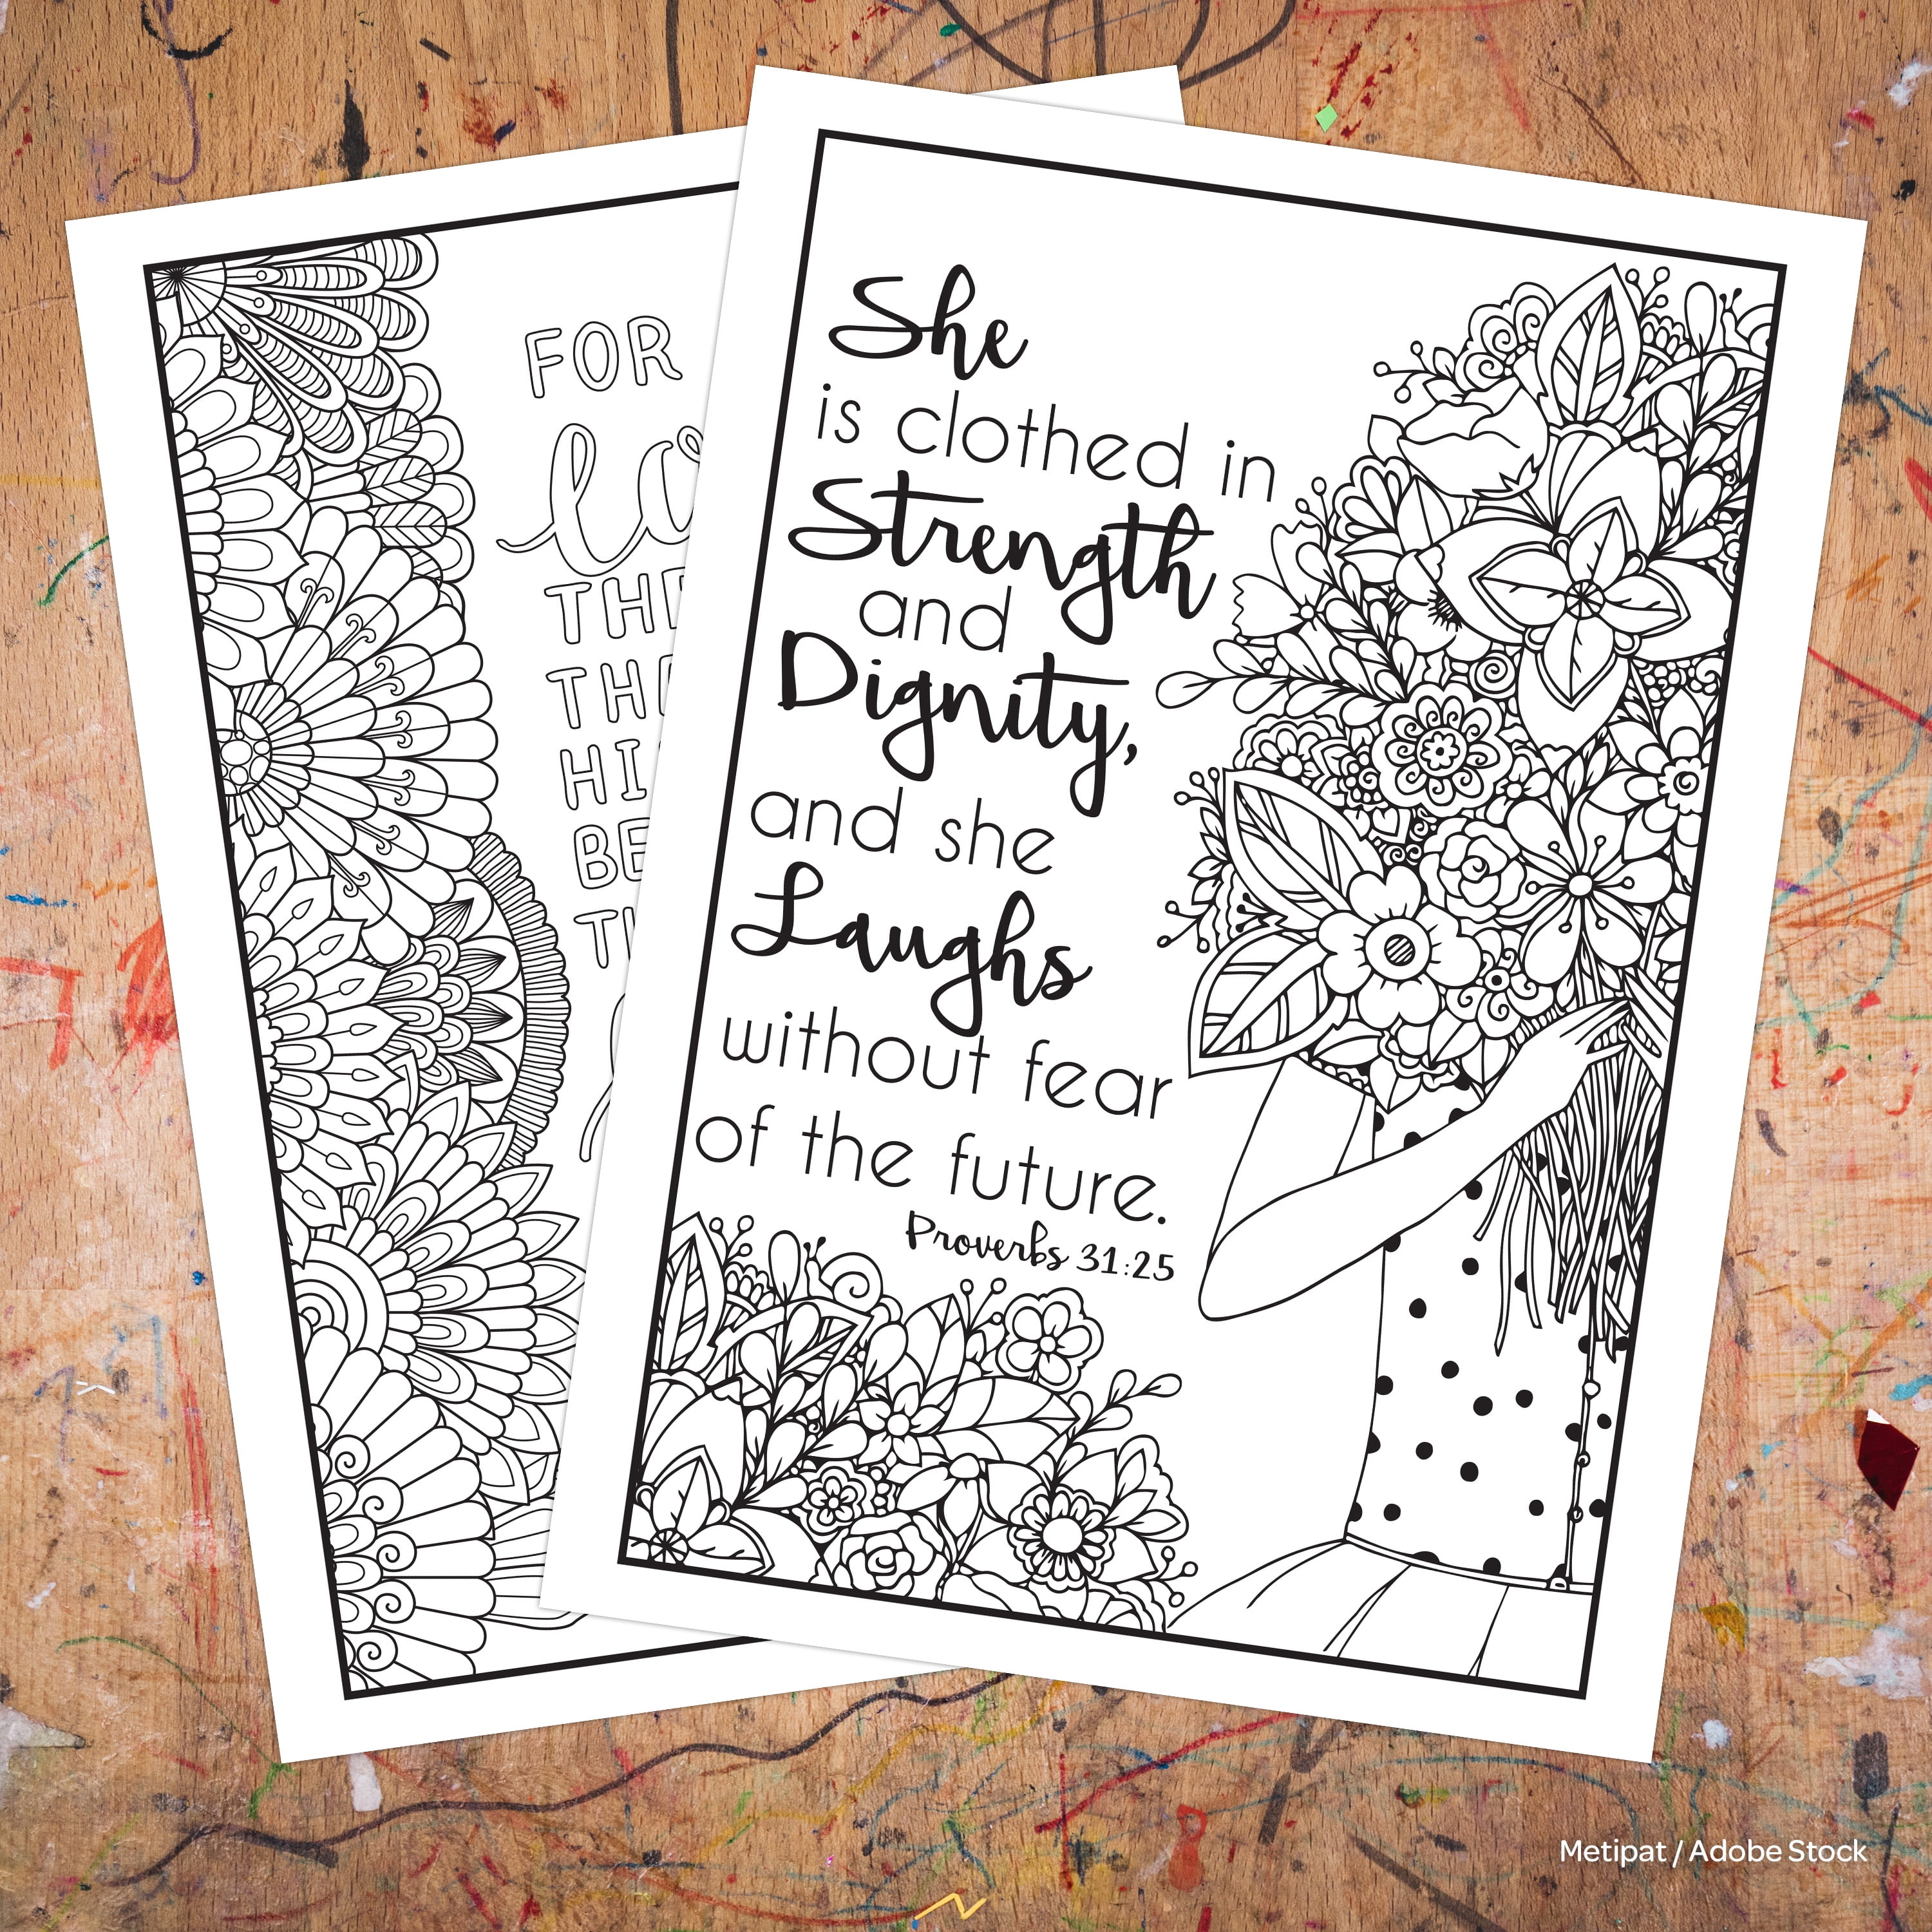 FOR
THE
HI
BE
She
is clothed in
Strength
and
Dignity,
and she
Laughs
without fear
of the future.
Proverbs 31:25
Metipat / Adobe Stock